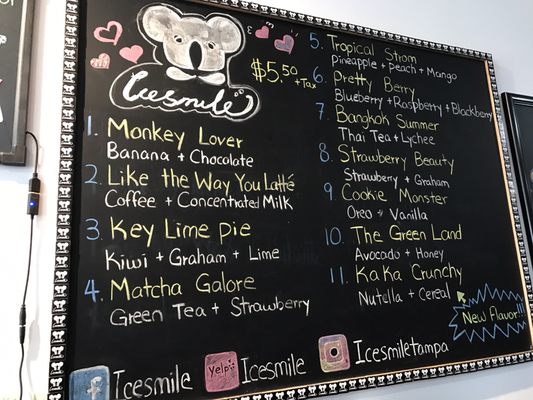 Icesmile
$5.50 +Tax
1. Monkey Lover
Banana + Chocolate
2. Like the Way You Latté
Coffee + Concentrated Milk
3. Key Lime pie
Kiwi + Graham + Lime
4. Matcha Galore
Green Tea + Strawberry
5. Tropical Strom
Pineapple + Peach + Mango
6. Pretty Berry
Blueberry + Raspberry + Blackberry
7. Bangkok Summer
Thai Tea + Lychee
8. Strawberry Beauty
Strawberry + Graham
9. Cookie Monster
Oreo + Vanilla
10. The Green Land
Avocado + Honey
11. Kaka Crunchy
Nutella + Cereal
New Flavor!!!
f Icesmile
Yelp Icesmile
Icesmiletampa